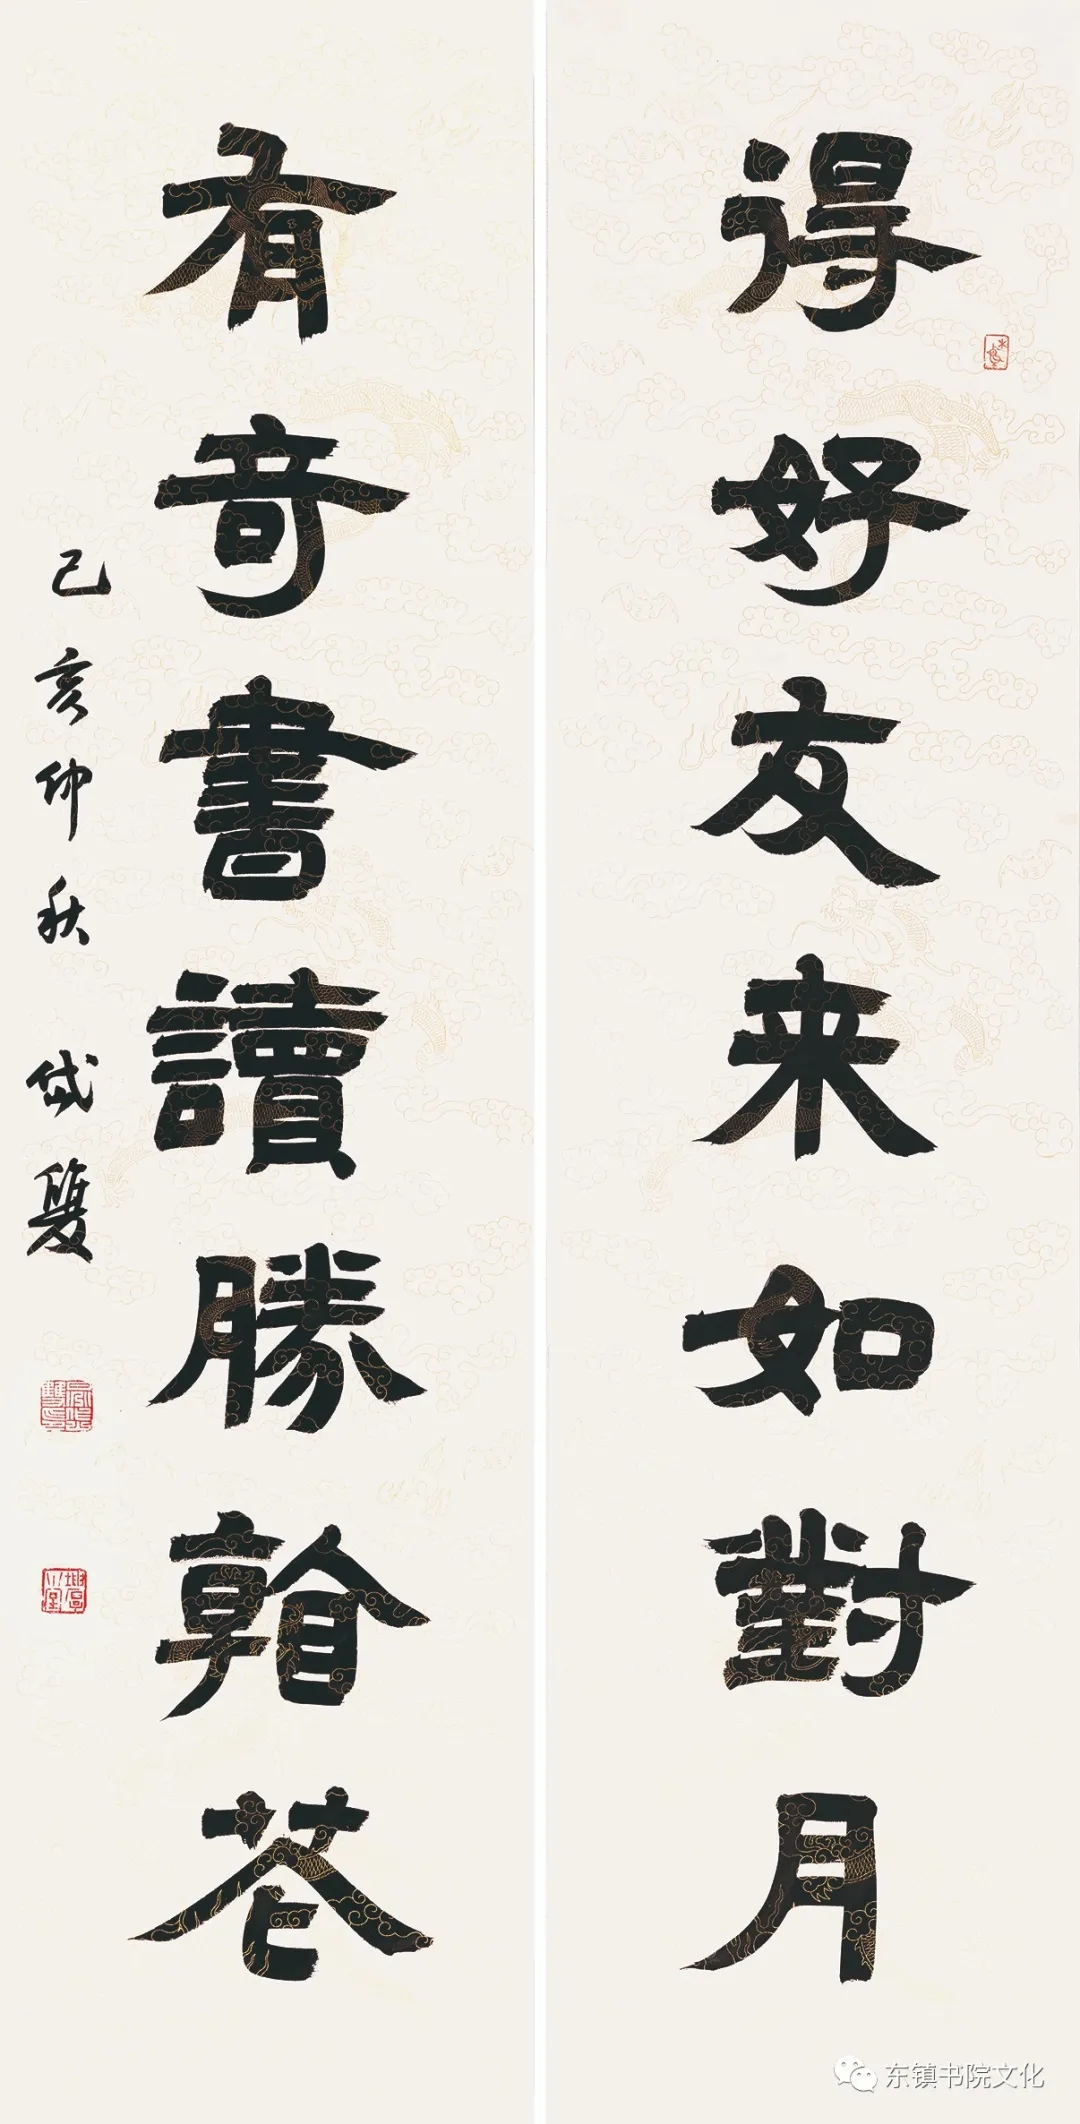 得好友来如對月
有奇書讀勝看花
己亥仲秋 岱雙
东镇书院文化